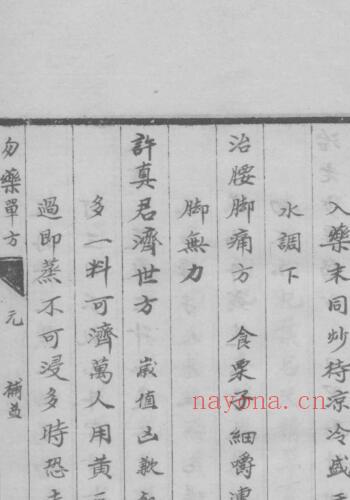 入藥末同炒待京冷盛
水調下
治腰脚痛方　食栗子細嚼
脚無力
許真君濟世方　歲值凶歉
多一料可濟萬人用黄
過即蒸不可浸多時恐
勿藥單方　元　補益
nayona.cn